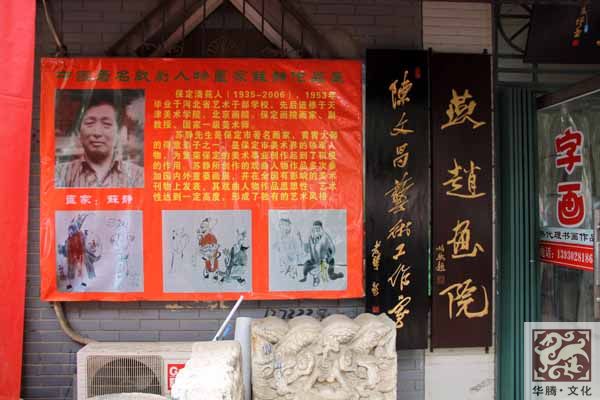 中国著名戏剧人物画家蘇靜作品展
保定清苑人(1935-2006),1953年
毕业于河北省艺术干部学校,先后进修于天
津美术学院,北京画院,保定画院画家、副
教授、国家一级美术师。
苏静先生是保定市著名画家,黄胄大师
的得意弟子之一,是保定市美术界的领军人
物,为繁荣保定的美术事业创作起到了积极
的作用。苏静所创作的戏曲人物作品多次参
加国内外重要画展,并在全国有影响的美术
刊物上发表,其戏曲人物作品思想性、艺术
性达到一定高度,形成了独有的艺术风格。
画家:蘇静
陳文昌藝術工作室
燕趙画院
字画
代理书画作品
电话:13930028186
华腾·文化